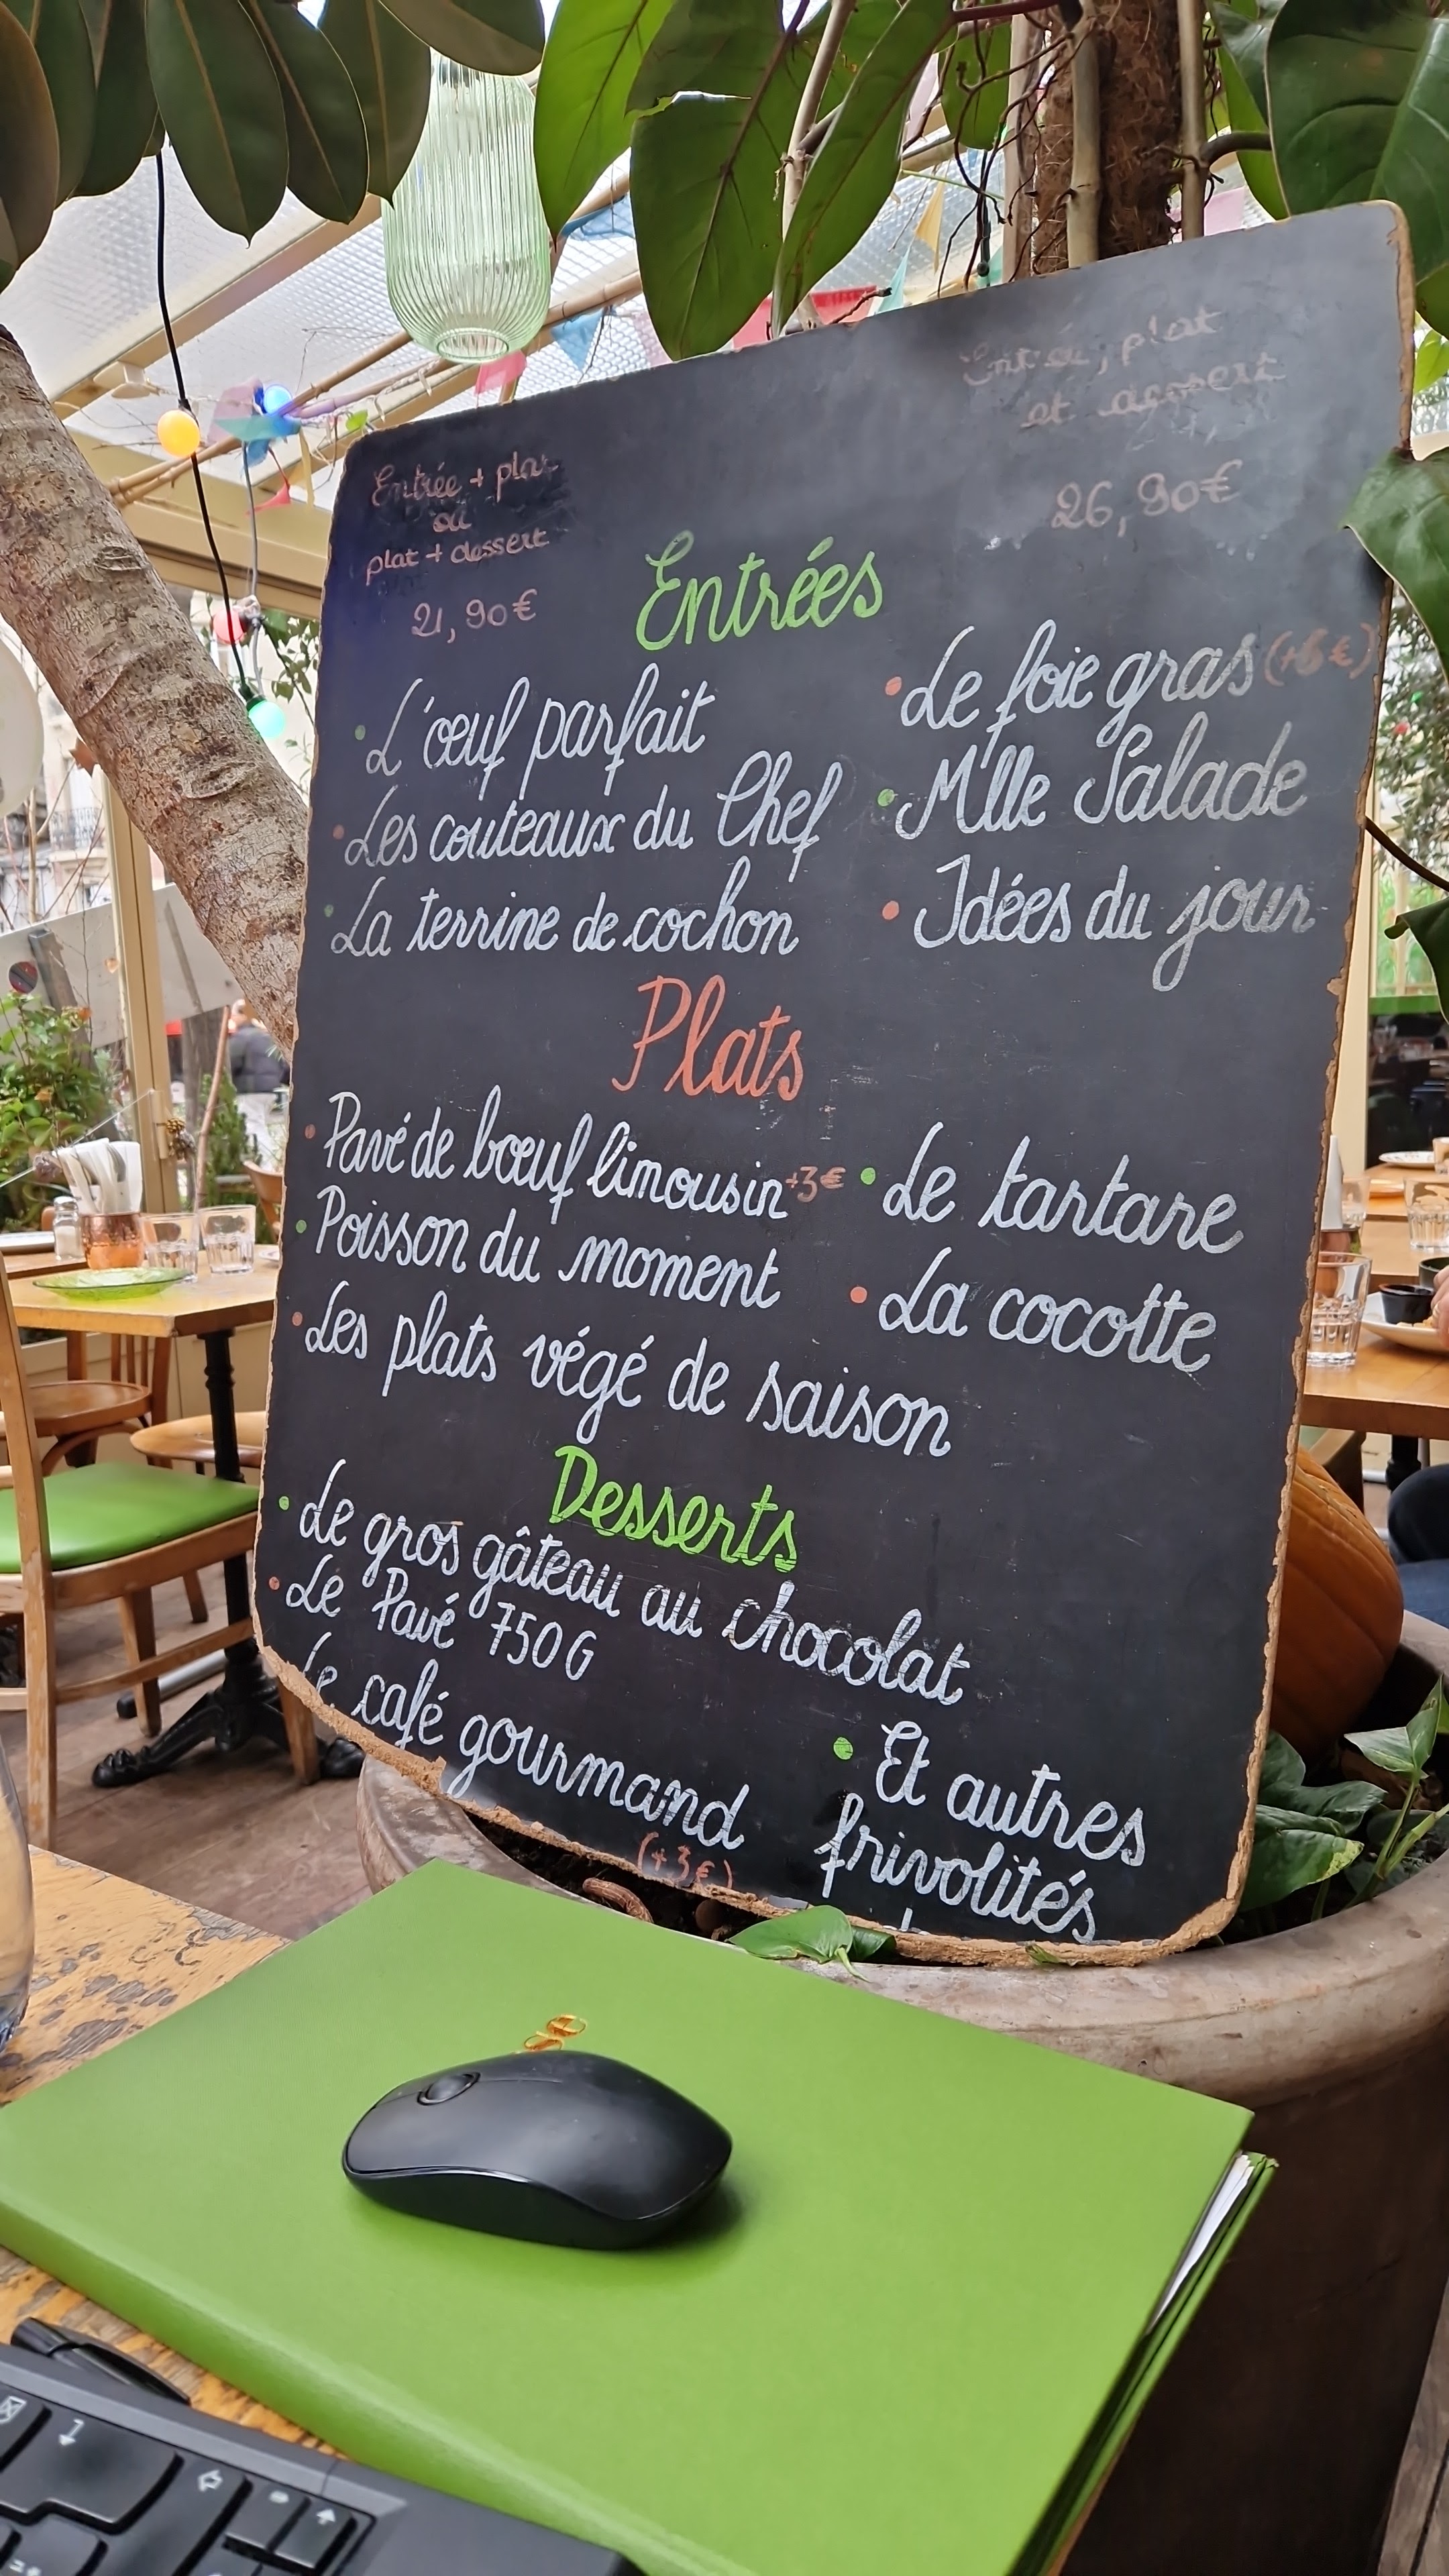 Entrée + plat
ou
plat + dessert
21,90€
Entrée, plat
et dessert
26,90€
Entrées
• L'œuf parfait
• Les couteaux du Chef
• La terrine de cochon
• Le foie gras
• M'lle Salade
• Idées du jour
Plats
• Pavé de bœuf limousin +3€
• Poisson du moment
• Les plats végé de saison
• Le tartare
• La cocotte
Desserts
• Le gros gâteau au chocolat
• Le Pavé 750G
Le café gourmand
(+3€)
• Et autres
frivolités